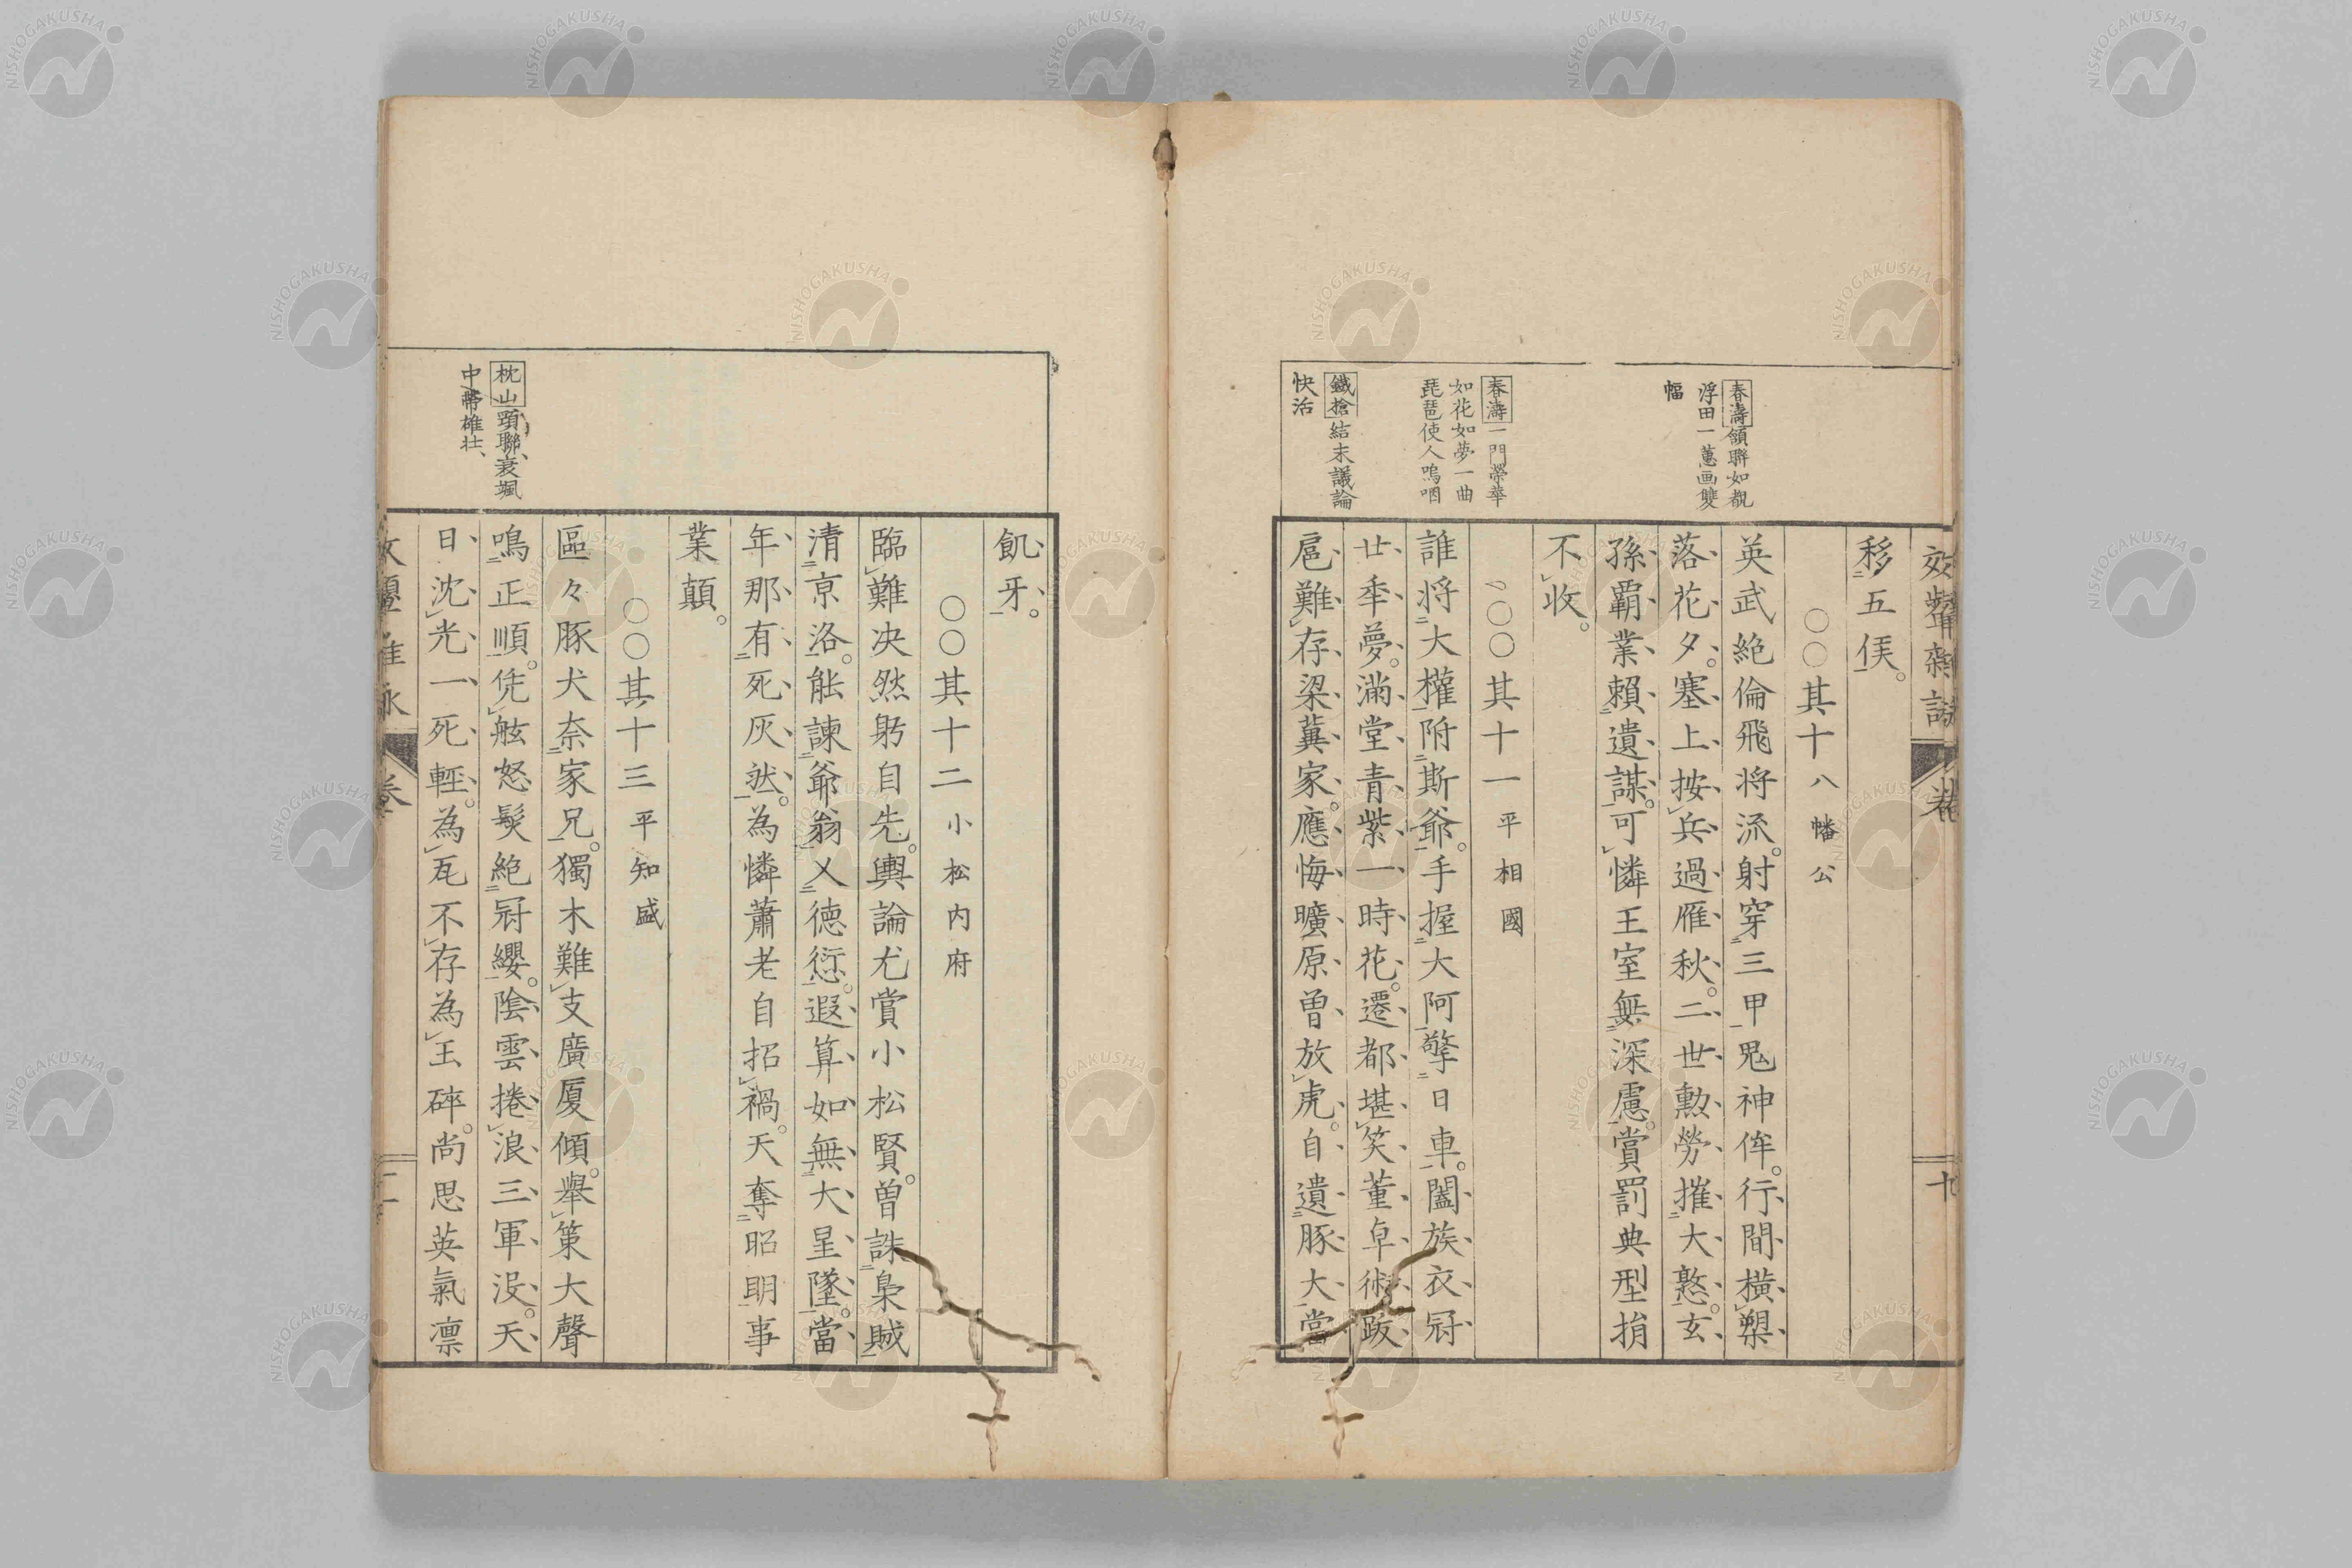 春濤頷聯如覩
浮田一蕙画雙
幅
春濤一門榮華
如花如夢一曲
琵琶使人嗚咽
鐵槍結末議論
快活
移五侯。
〇〇其十八幡公
英武絶倫飛将流。射穿三甲鬼神侔。行間橫槊
落花夕。塞上按兵過雁秋。二世勲勞摧大憝。玄
孫覇業賴遺謀。可憐王室無深慮。賞罰典型揹
不收。
〇〇其十一平相國
誰将大權附斯爺。手握大阿擎日車。闔族衣冠
廿年夢。滿堂青紫一時花。遷都堪笑董卓術。跋
扈難存梁冀家。應悔曠原曽放虎。自遺豚犬當
枕山頸聯衰颯
中帶雄壮、
飢牙。
〇〇其十二小松内府
臨難决然躬自先。輿論尤賞小松賢。曽誅梟賊
清京洛。能諫爺翁乂德愆。遐算如無大星墜。當
年那有死灰然。為憐蕭老自招禍。天奪昭明事
業顛。
〇〇其十三平知盛
區々豚犬奈家兄。獨木難支廣厦傾。舉策大聲
鳴正順。凭舷怒髮絶冠纓。陰雲捲浪三軍没。天
日沈光一死輕。為瓦不存為玉碎。尚思英氣凛
NISHOGAKUSHA